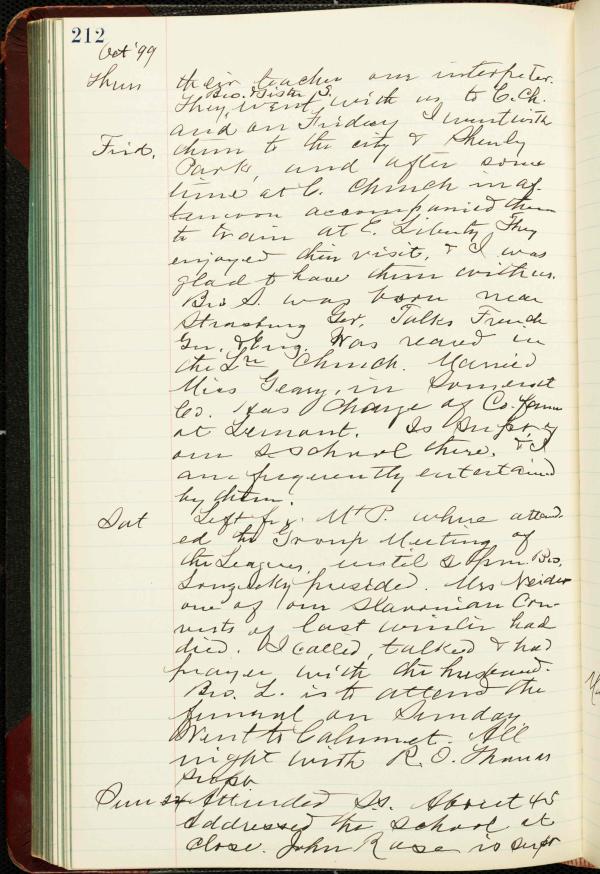 212
Oct '99
Thurs their teacher one interpeter.
Bro. & Sister S.
They, went with us to C. Ch.
and on Friday I went with
Frid. them to the city & Shenly
Park, and after some
time at C. Church in af-
ternoon accompanied them
to train at E. Liberty. They
enjoyed their visit, & I was
glad to have them with us.
Bro S. was born near
Strasburg Ger. Talks French
Ger. & Eng. Was reared in
the Ln Church. Married
Miss Geary, in Somerset
Co. Has charge of Co. farm
at Lemont. Is Supt of
our S. School there, & I
am frequently entertained
by them.
Sat Left for Mt P. where attend-
ed the Group Meeting of
the Leagues, until 2 pm. Bro.
presided. Mrs Neider
one of our Slavonian Con-
verts of last winter had
died. I called, talked & had
prayer with the husband.
Bro. L. is to attend the
funeral on Sunday.
Went to Calumet. All
night with R. O. Thomas
Supt
Sun Attended Ss. About 45
addressed the school at
close. John Rase is Supt